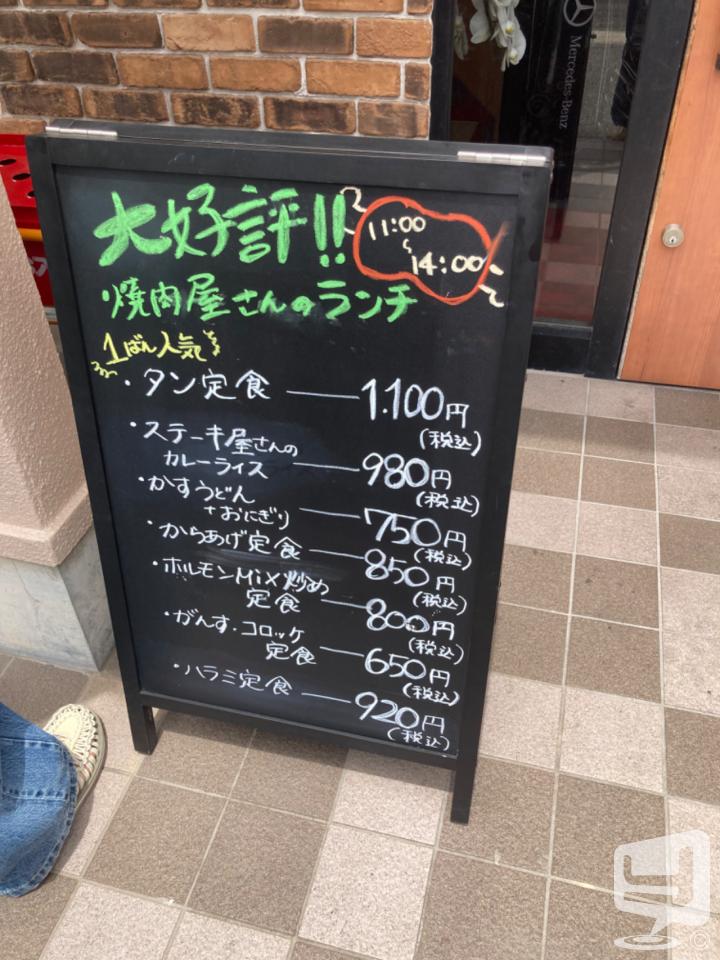 大好評!!
11:00
〜
14:00
焼肉屋さんのランチ
1ばん人気
・タン定食 ―― 1.100円
(税込)
・ステーキ屋さんの
カレーライス ―― 980円
(税込)
・かすうどん
+おにぎり ―― 750円
(税込)
・からあげ定食 ―― 850円
(税込)
・ホルモンMix炒め
定食 ―― 800円
(税込)
・がんす・コロッケ
定食 ―― 650円
(税込)
・ハラミ定食 ―― 920円
(税込)
Mercedes-Benz